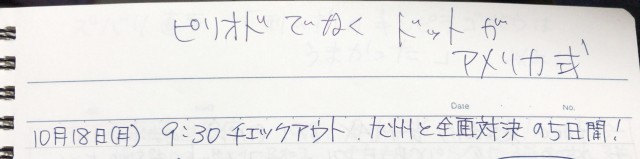 ピリオドでなく ドットが
アメリカ式
Date No.
10月18日(月) 9:30 チェックアウト. 九州と全面対決の5日間!